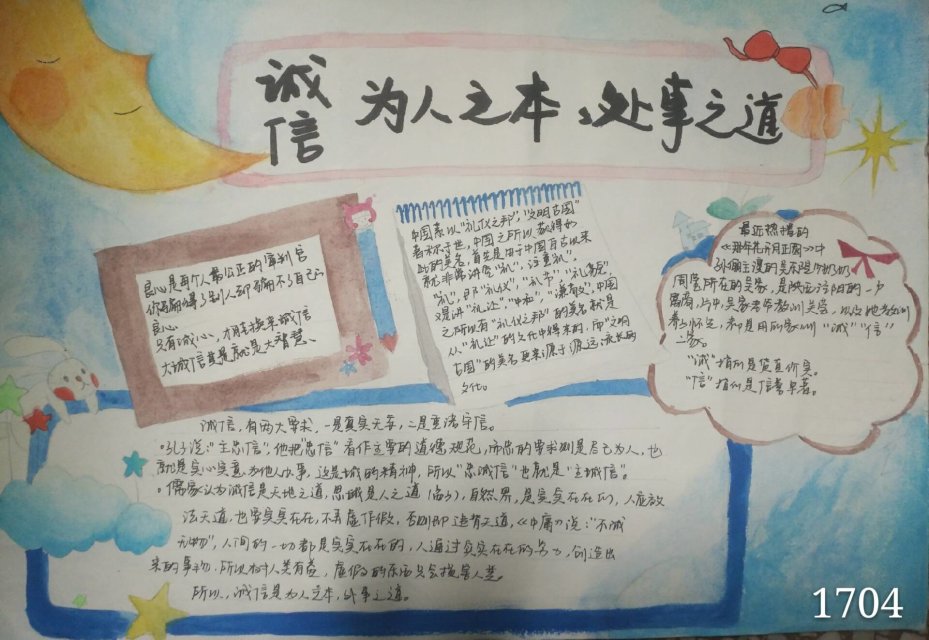 诚信 为人之本、处事之道
良心是每个人最公正的审判官
你骗得了别人却骗不了自己的
良心
只有诚心，才能换来诚信
大诚信其实就是大智慧、
中国素以"礼仪之邦"，"文明古国"
著称于世，中国之所以获得如
此的美名，首先是由于中国自古以来
就非常讲究"礼"，注重礼，
"礼"，即"礼仪"，"礼节"，"礼宾"，
"礼让"，"中和"，"谦敬"，中国
之所以有"礼仪之邦"的美名就是
从"礼让"的文化中得来的，而"文明
古国"的美名更来源于源远流长的
文化。
最近热播的
《那年花开月正圆》中
孙俪主演的吴家
周莹所在的吴家，是陕西泾阳的一户
"诚"指的是货真价实。
"信"指的是信誉卓著。
诚信，有两大要求，一是真实无妄，二是重诺守信。
孔子说："主忠信"，他把"忠信"看作主要的道德规范，而忠的要求则是尽己为人，也
就是实心实意为他人办事，这是诚的精神，所以"忠诚信"也就是"主诚信"。
儒家认为诚信是天地之道，思诚是人之道，自然界，是实实在在的，人应效
法天道，也要实实在在，不弄虚作假，否则即违背天道，《中庸》说："不诚
无物"，人间的一切都是实实在在的，人通过实实在在的劳力，创造出
来的事物，所以对人类有益，虚假的东西只会损害人类。
所以，诚信是为人之本，处事之道。
1704